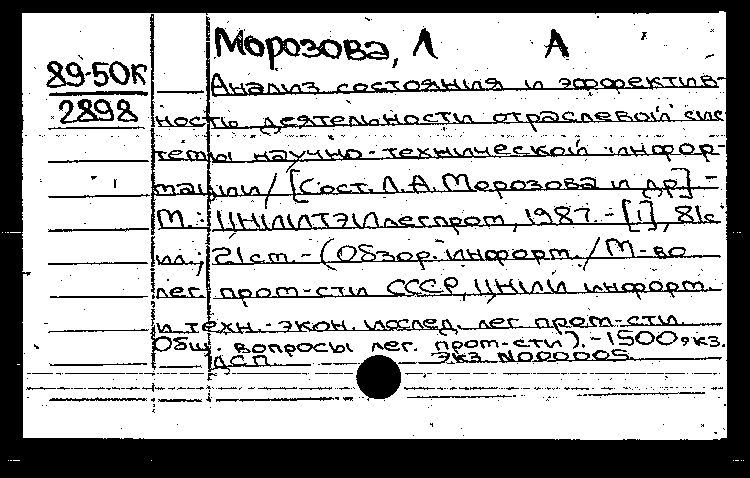 Морозова, Л А
89-50К
2898
Анализ состояния и эффектив-
ность деятельности отраслевой сис
темы научно-технической инфор-
мации / [Сост. Л. А. Морозова и др] -
М.: ЦНИИТЭИлегпром, 1987. - [1], 81с
ил.; 21см. - (Обзор. информ. / М-во
лег. пром-сти СССР, ЦНИИ информ.
и техн.-экон. исслед. лег. пром-сти
Общ. вопросы лег. пром-сти). - 1500экз.
ДСП. Экз. N000005